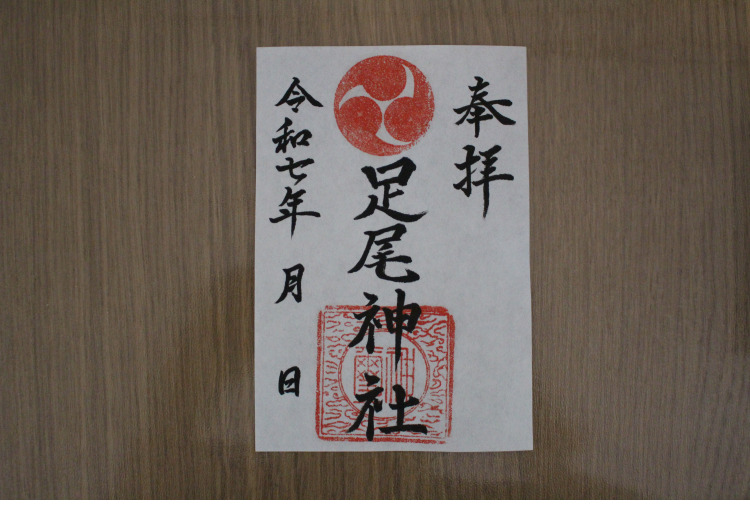 奉拝
足尾神社
令和七年 月 日